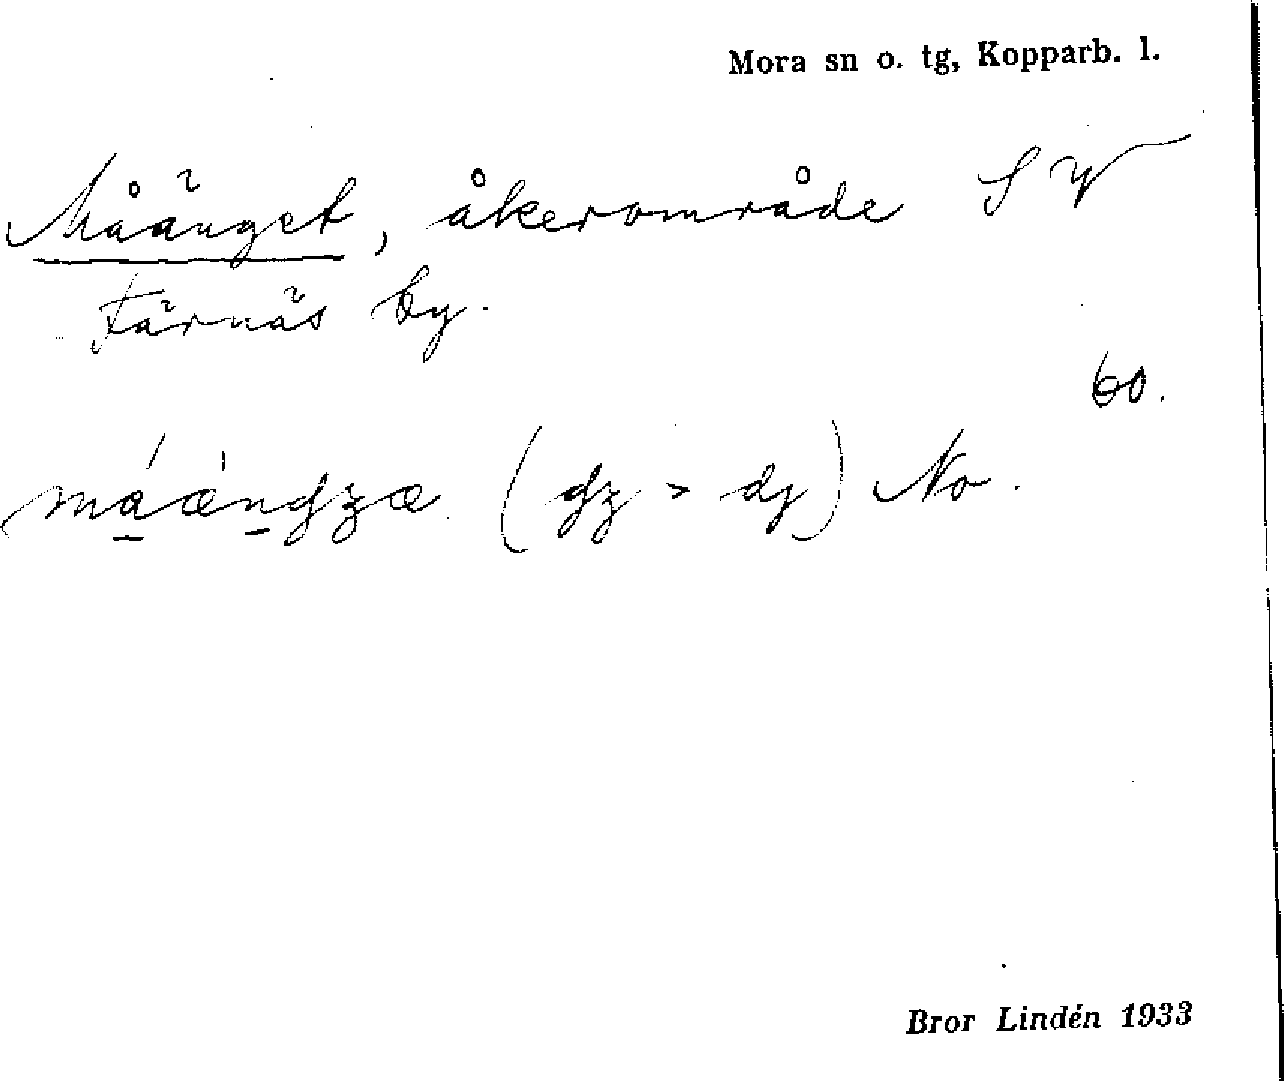 Mora sn o. tg, Kopparb. l.
Måänget, åkerområde SV
Färnäs by.
60.
(dz > dj) No.
Bror Lindén 1933